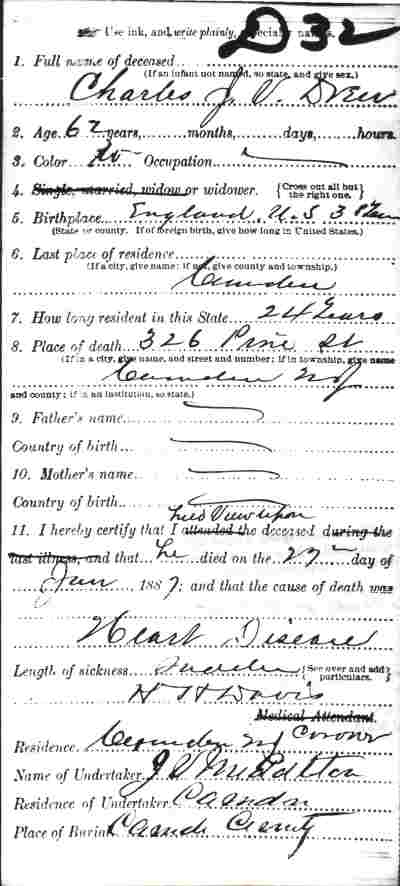 Use ink, and write plainly, especially names.
D32
1. Full name of deceased
(If an infant not named, so state, and give sex.)
Charles J. V. Drew
2. Age, 62 years, months, days, hours.
3. Color Occupation
4. Single, married, widow or widower. {Cross out all but the right one.}
5. Birthplace England, U.S 3
(State or county. If of foreign birth, give how long in United States.)
6. Last place of residence
(If a city, give name; if not, give county and township.)
Camden
7. How long resident in this State 24 Years
8. Place of death 326 Pine St
(If in a city, give name, and street and number; if in township, give name
Camden NJ
and county; if in an institution, so state.)
9. Father's name
Country of birth
10. Mother's name
Country of birth
held View upon
11. I hereby certify that I attended the deceased during the
last illness, and that he died on the 27 day of
Jan 1887; and that the cause of death was
Heart Disease
Length of sickness Sudden {See over and add particulars.}
H H Davis
Medical Attendant.
Residence. Camden NJ Coroner
Name of Undertaker
Residence of Undertaker Camden
Place of Burial